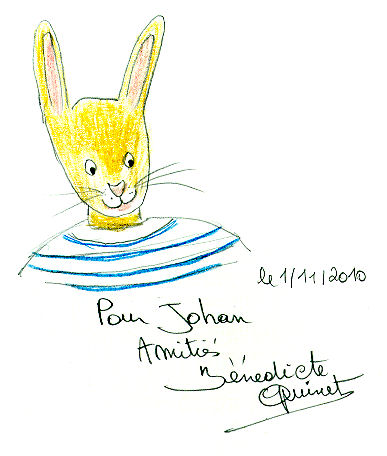 le 1/11/2010
Pour Johan
Amitiés
Bénédicte
Quinet